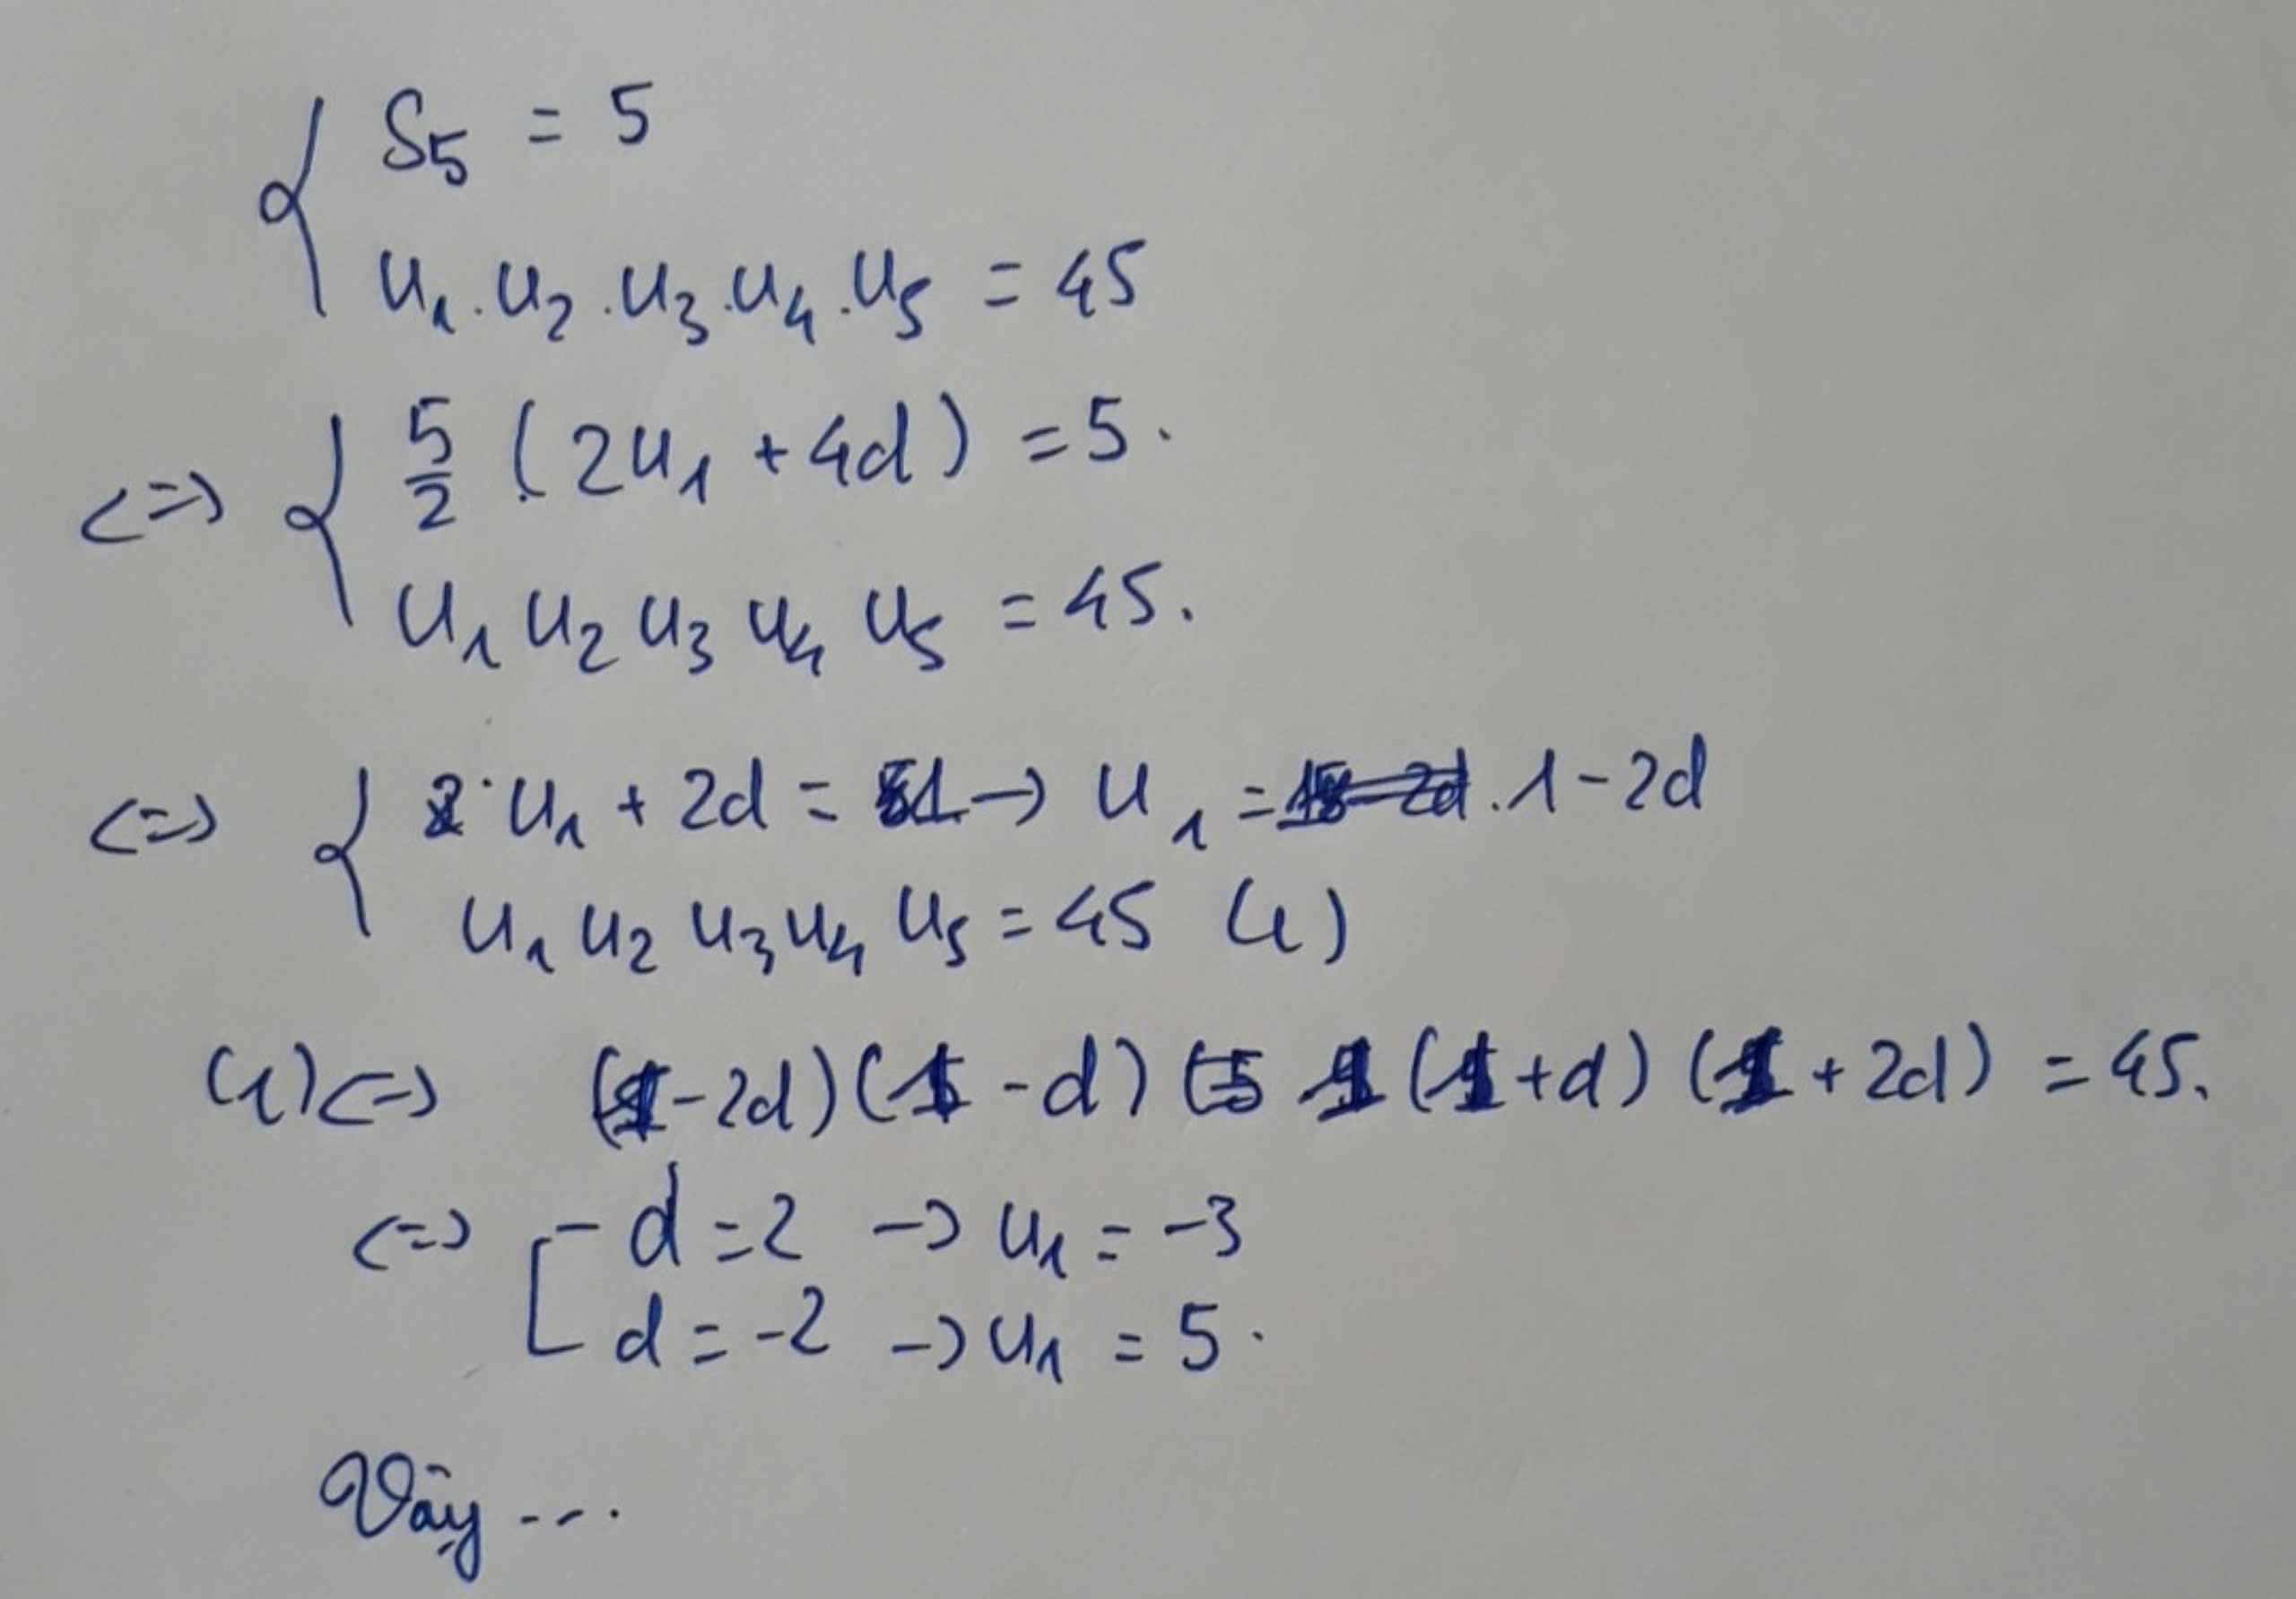 { S₅ = 5
u₁.u₂.u₃.u₄.u₅ = 45
<=> { 5/2 (2u₁ + 4d) = 5.
u₁ u₂ u₃ u₄ u₅ = 45.
<=> { u₁ + 2d = 1 → u₁ = 1-2d
u₁ u₂ u₃ u₄ u₅ = 45 (1)
(1) <=> (1-2d)(1-d) 1 (1+d) (1+2d) = 45.
<=> [ d = 2 → u₁ = -3
d = -2 → u₁ = 5.
Vậy ....